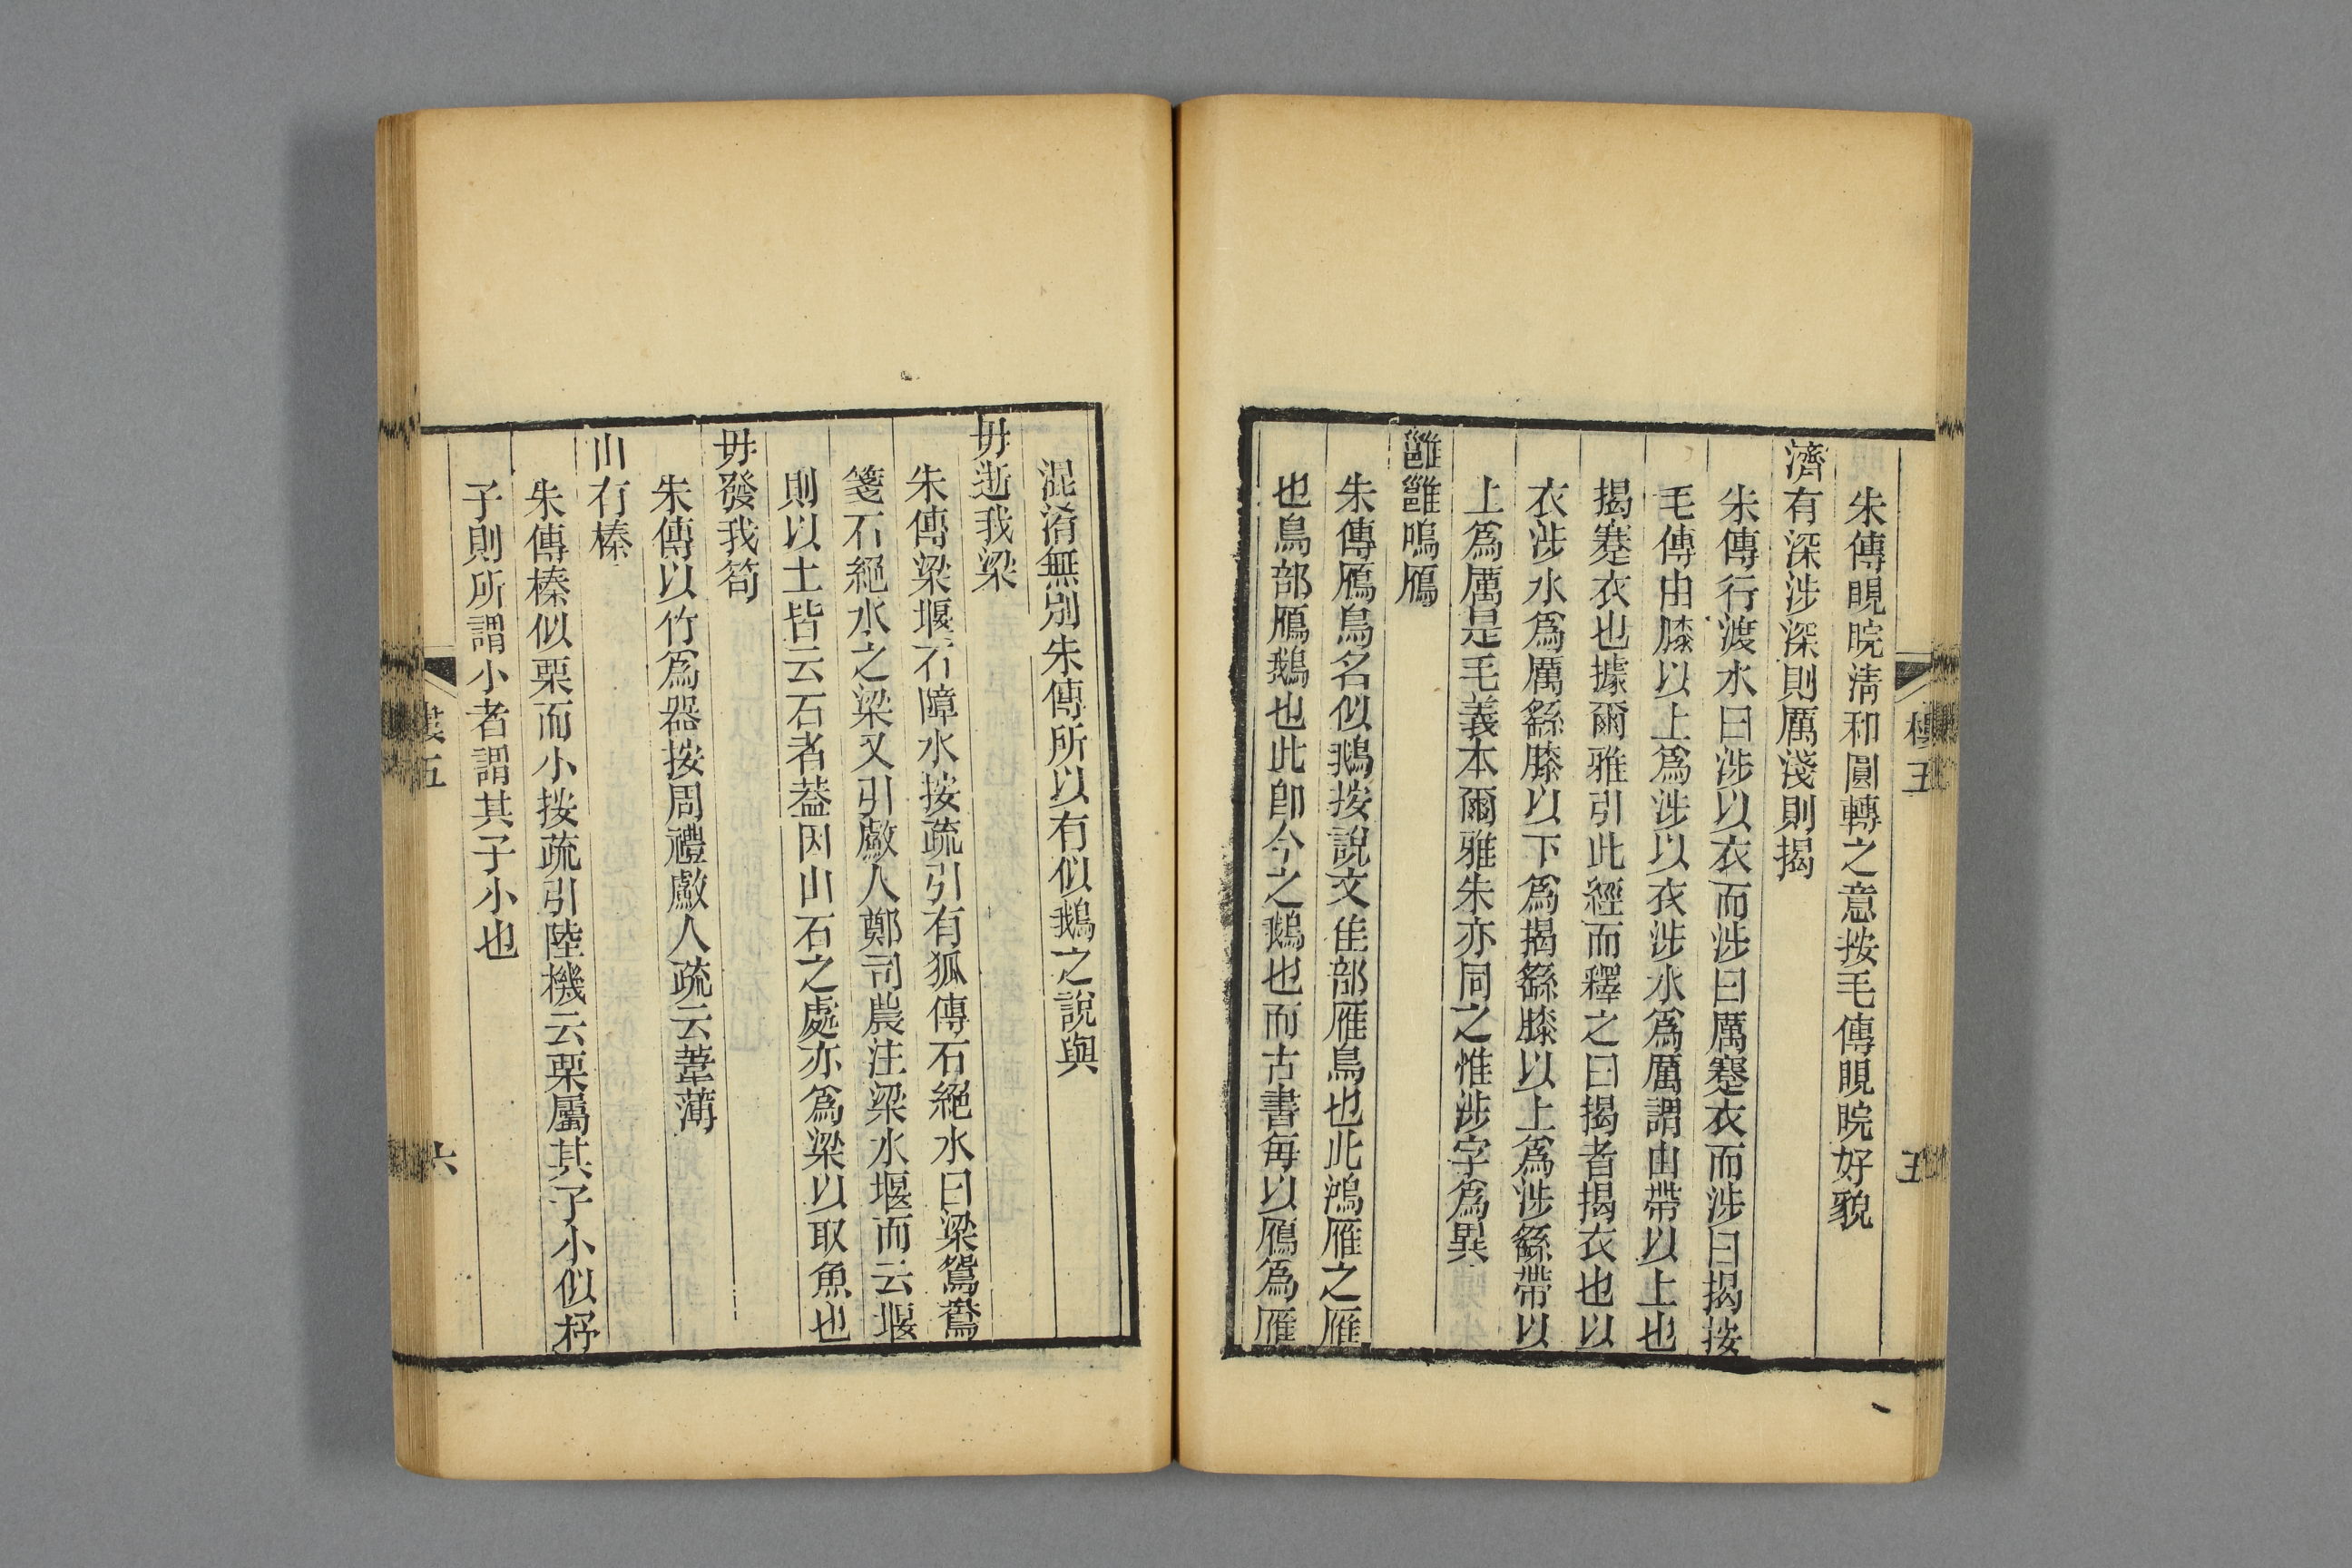 朱傳睍睆淸和圓轉之意按毛傳睍睆好貌
濟有深涉深則厲淺則揭
朱傳行渡水曰涉以衣而涉曰厲蹇衣而涉曰揭按
毛傳由膝以上爲涉以衣涉水爲厲謂由帶以上也
揭蹇衣也據爾雅引此經而釋之曰揭者揭衣也以
衣涉水爲厲繇膝以下爲揭繇膝以上爲涉繇帶以
上爲厲是毛義本爾雅朱亦同之惟涉字爲異
雝雝鳴鴈
朱傳鴈鳥名似鵝按說文隹部雁鳥也此鴻雁之雁
也鳥部鴈鵝也此卽今之鵝也而古書每以鴈爲雁
五
混淆無別朱傳所以有似鵝之說與
毋逝我梁
朱傳梁堰石障水按疏引有狐傳石絕水曰梁鴛鴦
箋石絕水之梁又引䱷人鄭司農注梁水堰而云堰
則以土皆云石者葢因山石之處亦爲梁以取魚也
毋發我笱
朱傳以竹爲器按周禮䱷人疏云葦薄
山有榛
朱傳榛似栗而小按疏引陸機云栗屬其子小似杼
子則所謂小者謂其子小也
六